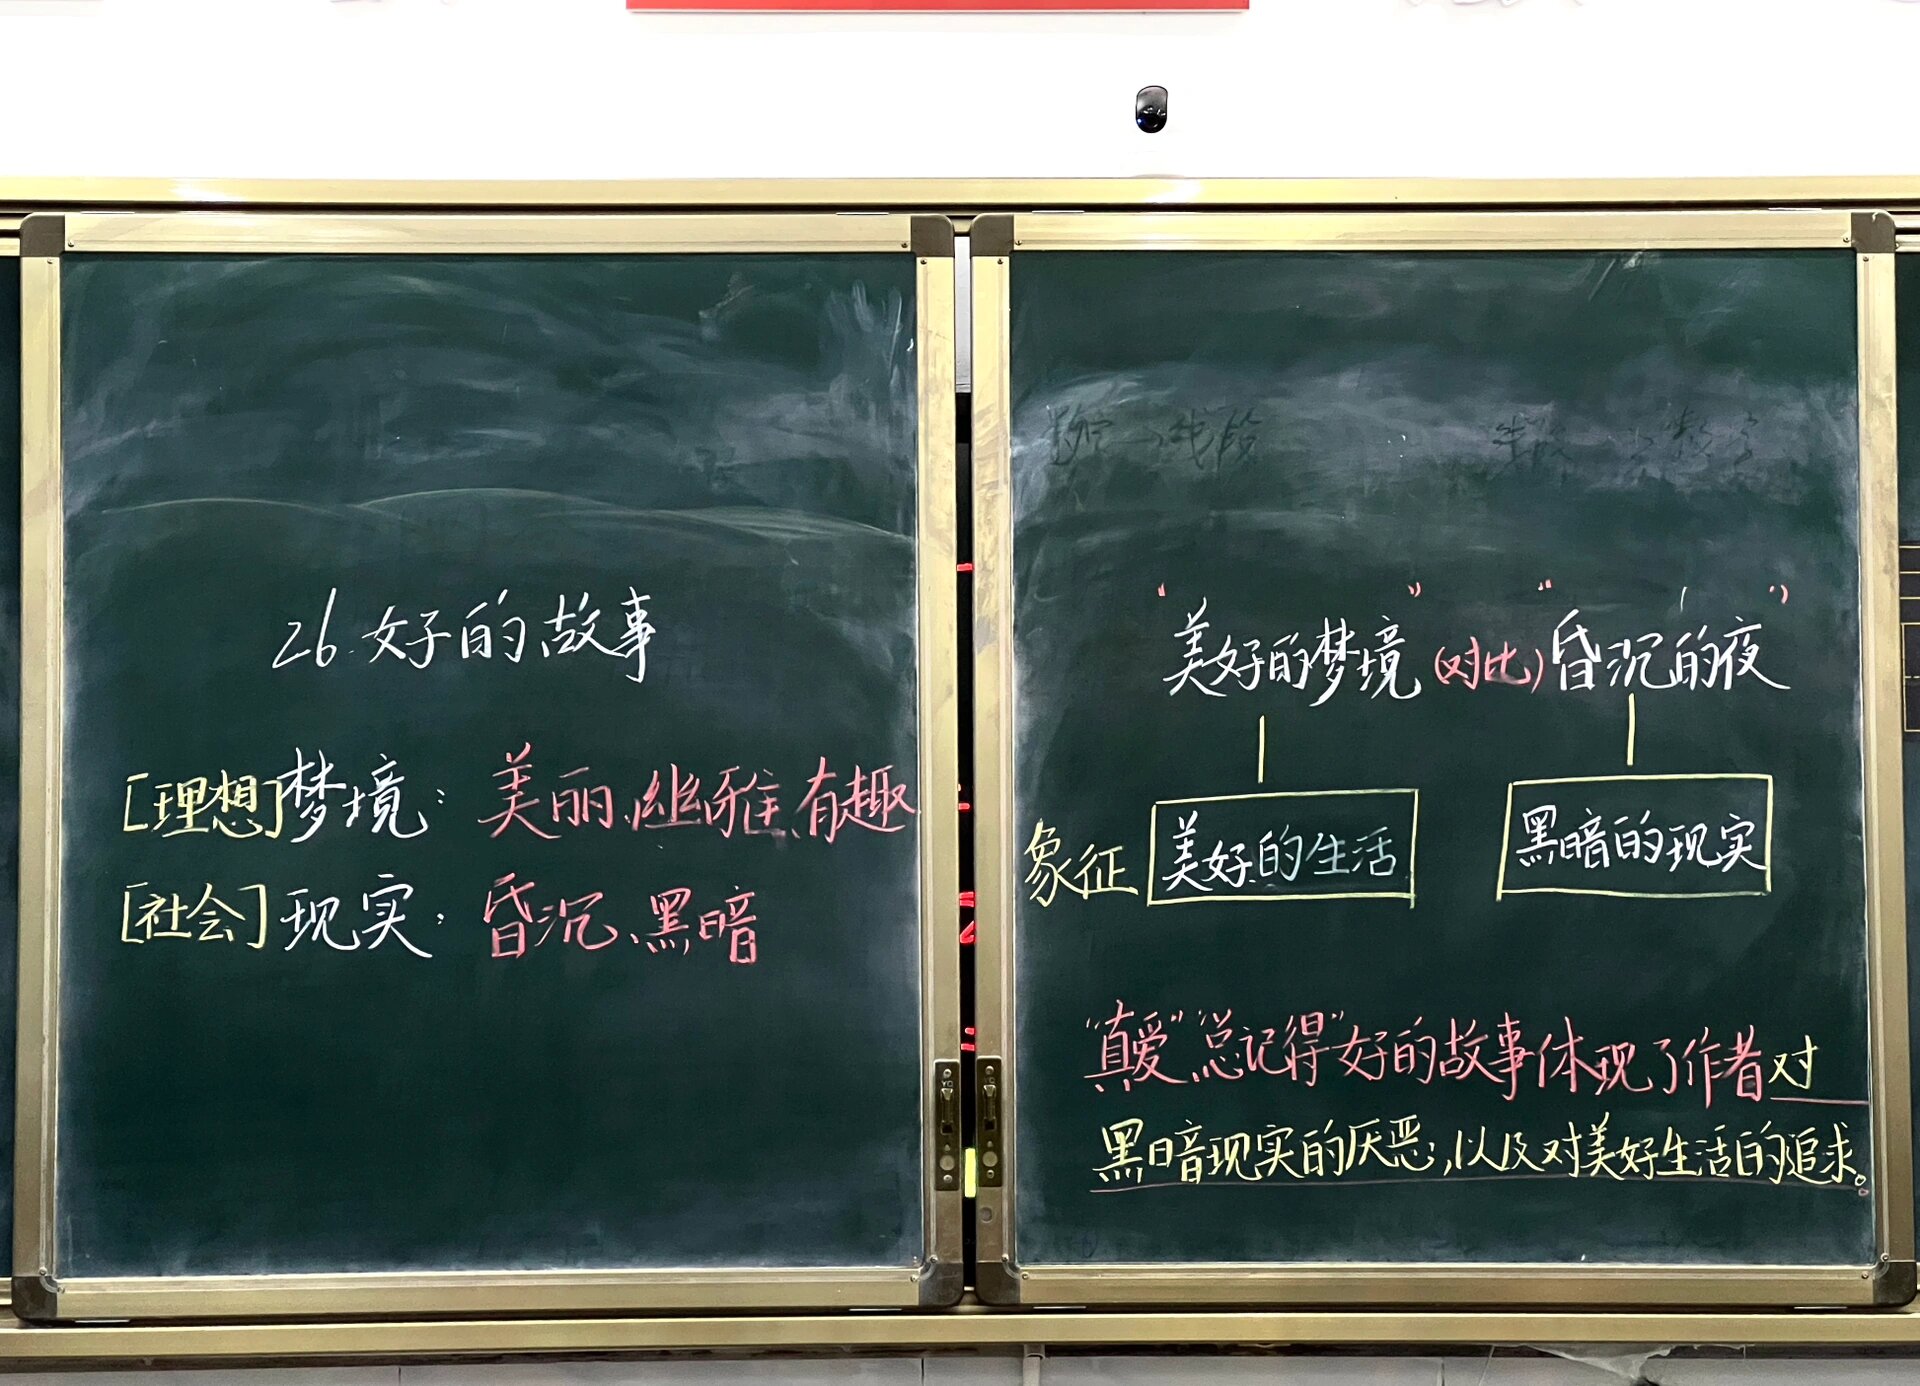 26.好的故事
[理想]梦境：美丽、幽雅、有趣
[社会]现实：昏沉、黑暗
“美好的梦境”(对比)“昏沉的夜”
象征 美好的生活 黑暗的现实
“真爱”“总记得”好的故事体现了作者对
黑暗现实的厌恶，以及对美好生活的追求。